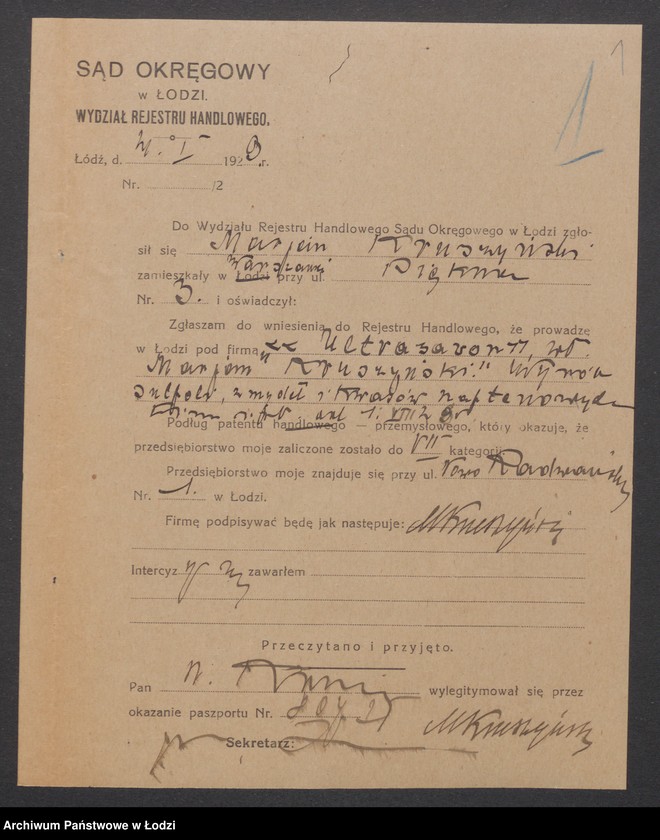 1
1
SĄD OKRĘGOWY
w ŁODZI.
WYDZIAŁ REJESTRU HANDLOWEGO.
Łódź, d. I 192 r.
Nr. /2
Do Wydziału Rejestru Handlowego Sądu Okręgowego w Łodzi zgło-
sił się Marjan Kruszyński
zamieszkały w Łodzi Warszawie przy ul. Piękna
Nr. 3. i oświadczył:
Zgłaszam do wniesienia do Rejestru Handlowego, że prowadzę
w Łodzi pod firmą „Ultrasavon",
Marjan Kruszyński." Wyrób
mydeł i kwasów naftenowych
1. VII
Podług patentu handlowego — przemysłowego, który okazuje, że
przedsiębiorstwo moje zaliczone zostało do VII kategorji.
Przedsiębiorstwo moje znajduje się przy ul. Nowo Radwańska
Nr. 1. w Łodzi.
Firmę podpisywać będę jak następuje: MKruszyński
Intercyz zawarłem
Przeczytano i przyjęto.
Pan wylegitymował się przez
okazanie paszportu Nr.
MKruszyński
Sekretarz:
Archiwum Państwowe w Łodzi